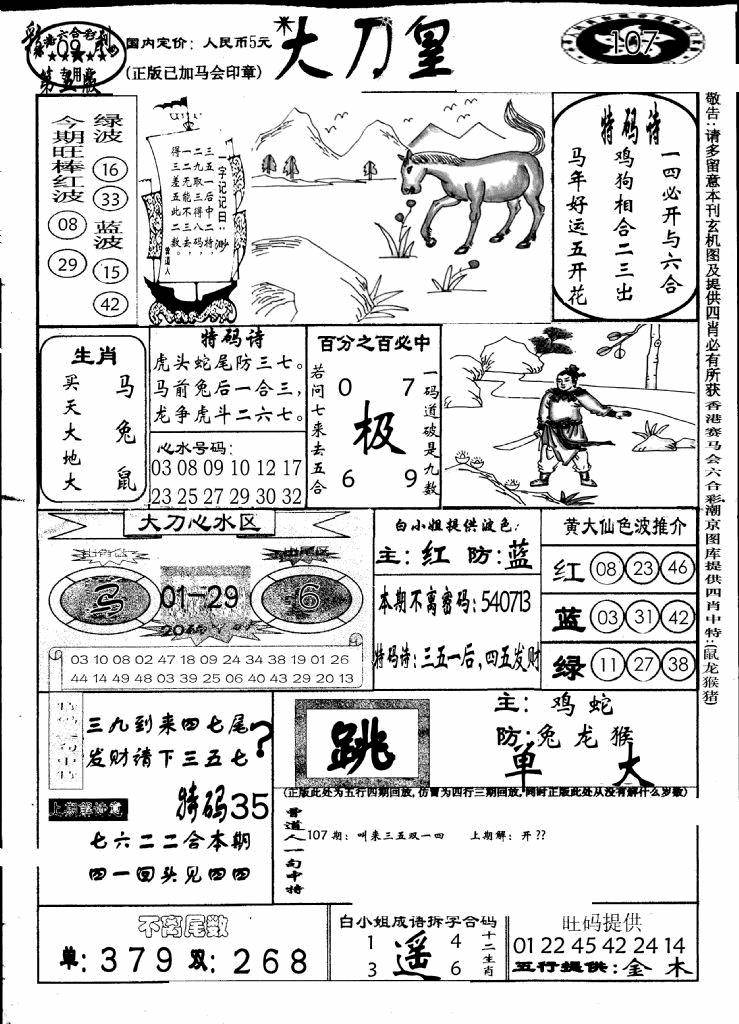 彩 香港六合彩 利
09
专用章
第五版
国内定价：人民币5元
(正版已加马会印章)
大刀皇
107
今期旺棒红波
08
29
绿波
16
33
蓝波
15
42
一字记记曰：渺
三五一后中二特，
二九取三得八码，
一二无能不三去，
得三差五此二数。
曾道人
特码诗
一四必开与六合
鸡狗相合二三出
马年好运五开花
敬告：请多留意本刊玄机图及提供四肖必有所获香港赛马会六合彩潮京图库提供四肖中特：(鼠龙猴猪)
生肖
买天大地大
马兔鼠
特码诗
虎头蛇尾防三七。
马前兔后一合三，
龙争虎斗二六七。
心水号码：
03 08 09 10 12 17
23 25 27 29 30 32
百分之百必中
若问七来去五合
0 7
极
6 9
一码道破是九数
大刀心水区
马
01-29
6
03 10 08 02 47 18 09 24 34 38 19 01 26
44 14 49 48 03 39 25 06 40 43 29 20 13
白小姐提供波色：
主：红 防：蓝
本期不离密码：540713
特码诗：三五一后，四五发财
黄大仙色波推介
红 08 23 46
蓝 03 31 42
绿 11 27 38
三九到来四七尾
发财请下三五七
?
特码35
七六二二合本期
四一回头见四四
跳
主：鸡 蛇
防：兔 龙 猴
单 大
(正版此处为五行四期回放，仿冒为四行三期回放，同时正版此处从没有解什么岁数)
曾道人一句中特
107期：叫来三五双一四 上期解：开??
不离尾数
单：379 双：268
白小姐成语拆字合码
1 4
遥
3 6
十二生肖
旺码提供
01 22 45 42 24 14
五行提供：金 木